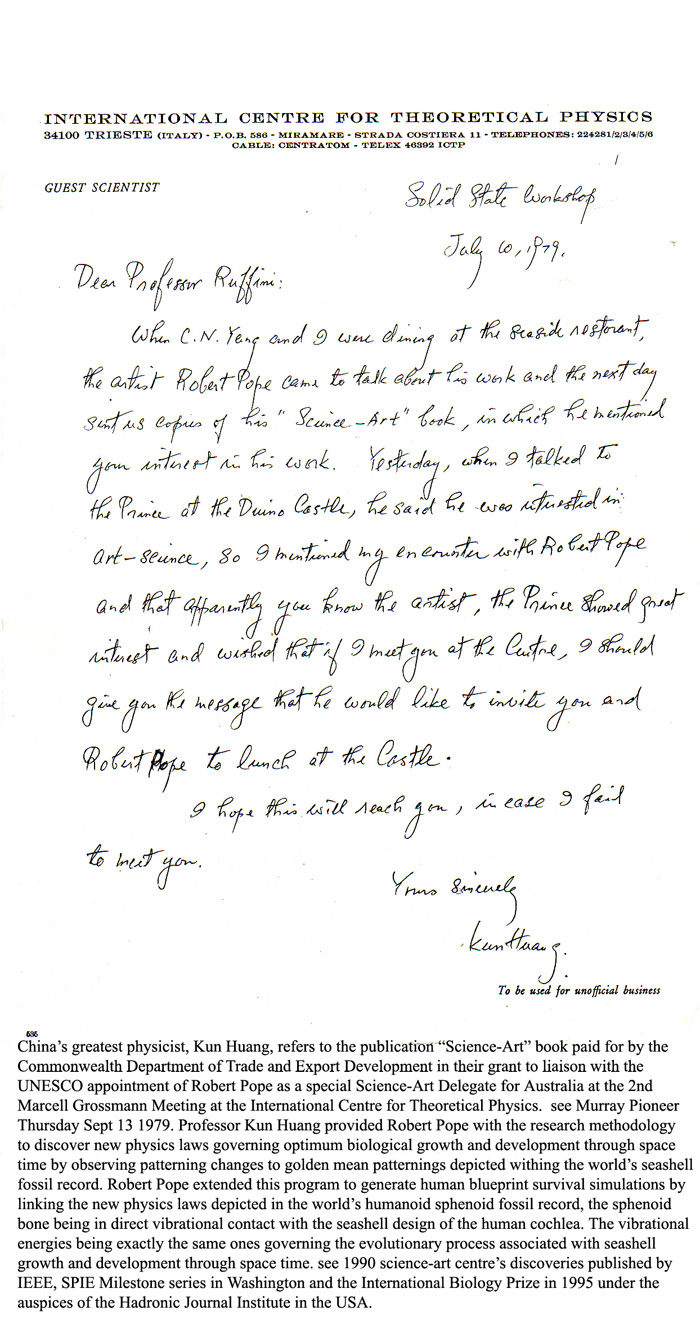 INTERNATIONAL CENTRE FOR THEORETICAL PHYSICS
34100 TRIESTE (ITALY) - P.O.B. 586 - MIRAMARE - STRADA COSTIERA 11 - TELEPHONES: 224281/2/3/4/5/6
CABLE: CENTRATOM - TELEX 46392 ICTP
GUEST SCIENTIST
Solid State Workshop
July 10, 1979.
Dear Professor Ruffini:
When C.N. Yang and I were dining at the seaside restorant,
the artist Robert Pope came to talk about his work and the next day
sent us copies of his "Science-Art" book, in which he mentioned
your interest in his work. Yesterday, when I talked to
the Prince at the Duino Castle, he said he was interested in
art-science, so I mentioned my encounter with Robert Pope
and that apparently you know the artist, the Prince showed great
interest and wished that if I meet you at the Centre, I should
give you the message that he would like to invite you and
Robert Pope to lunch at the Castle.
I hope this will reach you, in case I fail
to meet you.
Yours Sincerely
Kun Huang.
To be used for unofficial business
China's greatest physicist, Kun Huang, refers to the publication "Science-Art" book paid for by the
Commonwealth Department of Trade and Export Development in their grant to liaison with the
UNESCO appointment of Robert Pope as a special Science-Art Delegate for Australia at the 2nd
Marcell Grossmann Meeting at the International Centre for Theoretical Physics.  see Murray Pioneer
Thursday Sept 13 1979. Professor Kun Huang provided Robert Pope with the research methodology
to discover new physics laws governing optimum biological growth and development through space
time by observing patterning changes to golden mean patternings depicted withing the world's seashell
fossil record. Robert Pope extended this program to generate human blueprint survival simulations by
linking the new physics laws depicted in the world's humanoid sphenoid fossil record, the sphenoid
bone being in direct vibrational contact with the seashell design of the human cochlea. The vibrational
energies being exactly the same ones governing the evolutionary process associated with seashell
growth and development through space time. see 1990 science-art centre's discoveries published by
IEEE, SPIE Milestone series in Washington and the International Biology Prize in 1995 under the
auspices of the Hadronic Journal Institute in the USA.